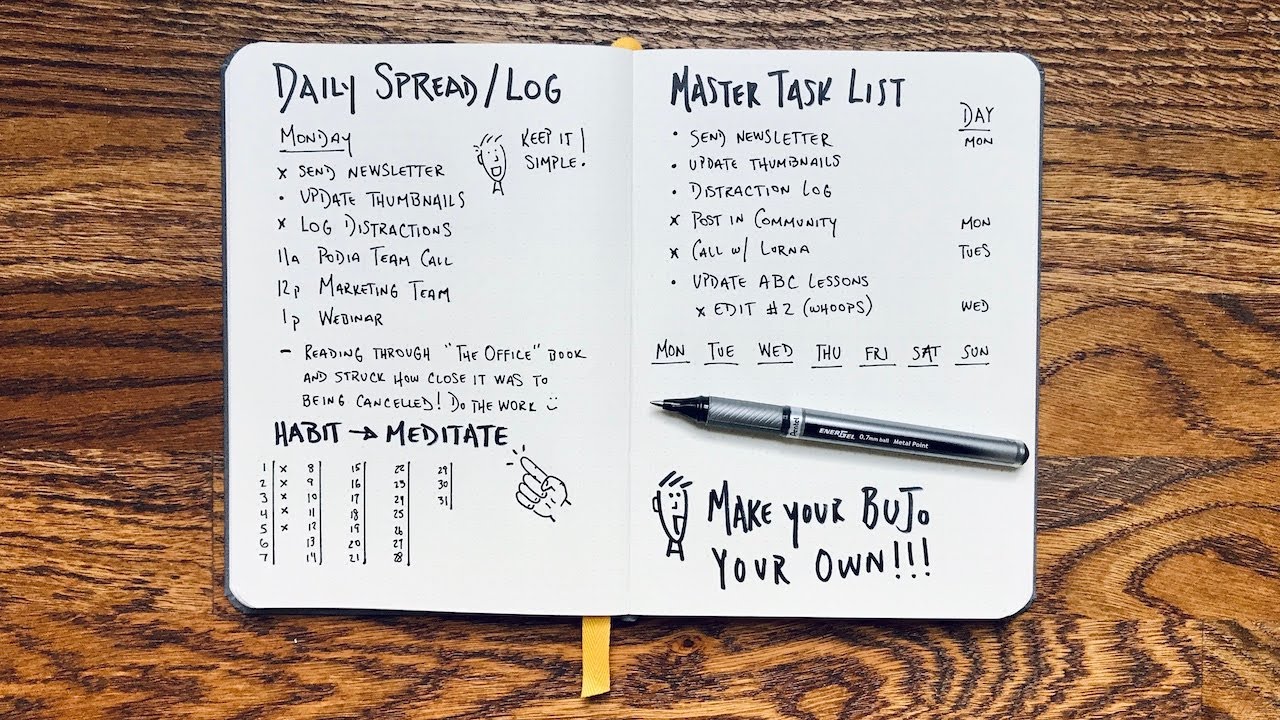 DAILY SPREAD/LOG
MONDAY
KEEP IT
SIMPLE!
x SEND NEWSLETTER
• UPDATE THUMBNAILS
x LOG DISTRACTIONS
11a PODIA TEAM CALL
12p MARKETING TEAM
1p WEBINAR
– READING THROUGH "THE OFFICE" BOOK
AND STRUCK HOW CLOSE IT WAS TO
BEING CANCELLED! DO THE WORK
HABIT → MEDITATE
1 x 8 15 22 29
2 x 9 16 23 30
3 x 10 17 24 31
4 x 11 18 25
5 x 12 19 26
6 13 20 27
7 14 21 28
MASTER TASK LIST
DAY
• SEND NEWSLETTER MON
• UPDATE THUMBNAILS
• DISTRACTION LOG
x POST IN COMMUNITY MON
x CALL W/ LORNA TUES
• UPDATE ABC LESSONS
x EDIT #2 (WHOOPS) WED
MON TUE WED THU FRI SAT SUN
Pentel ENERGEL 0.7mm ball Metal Point
MAKE YOUR BUJO
YOUR OWN!!!